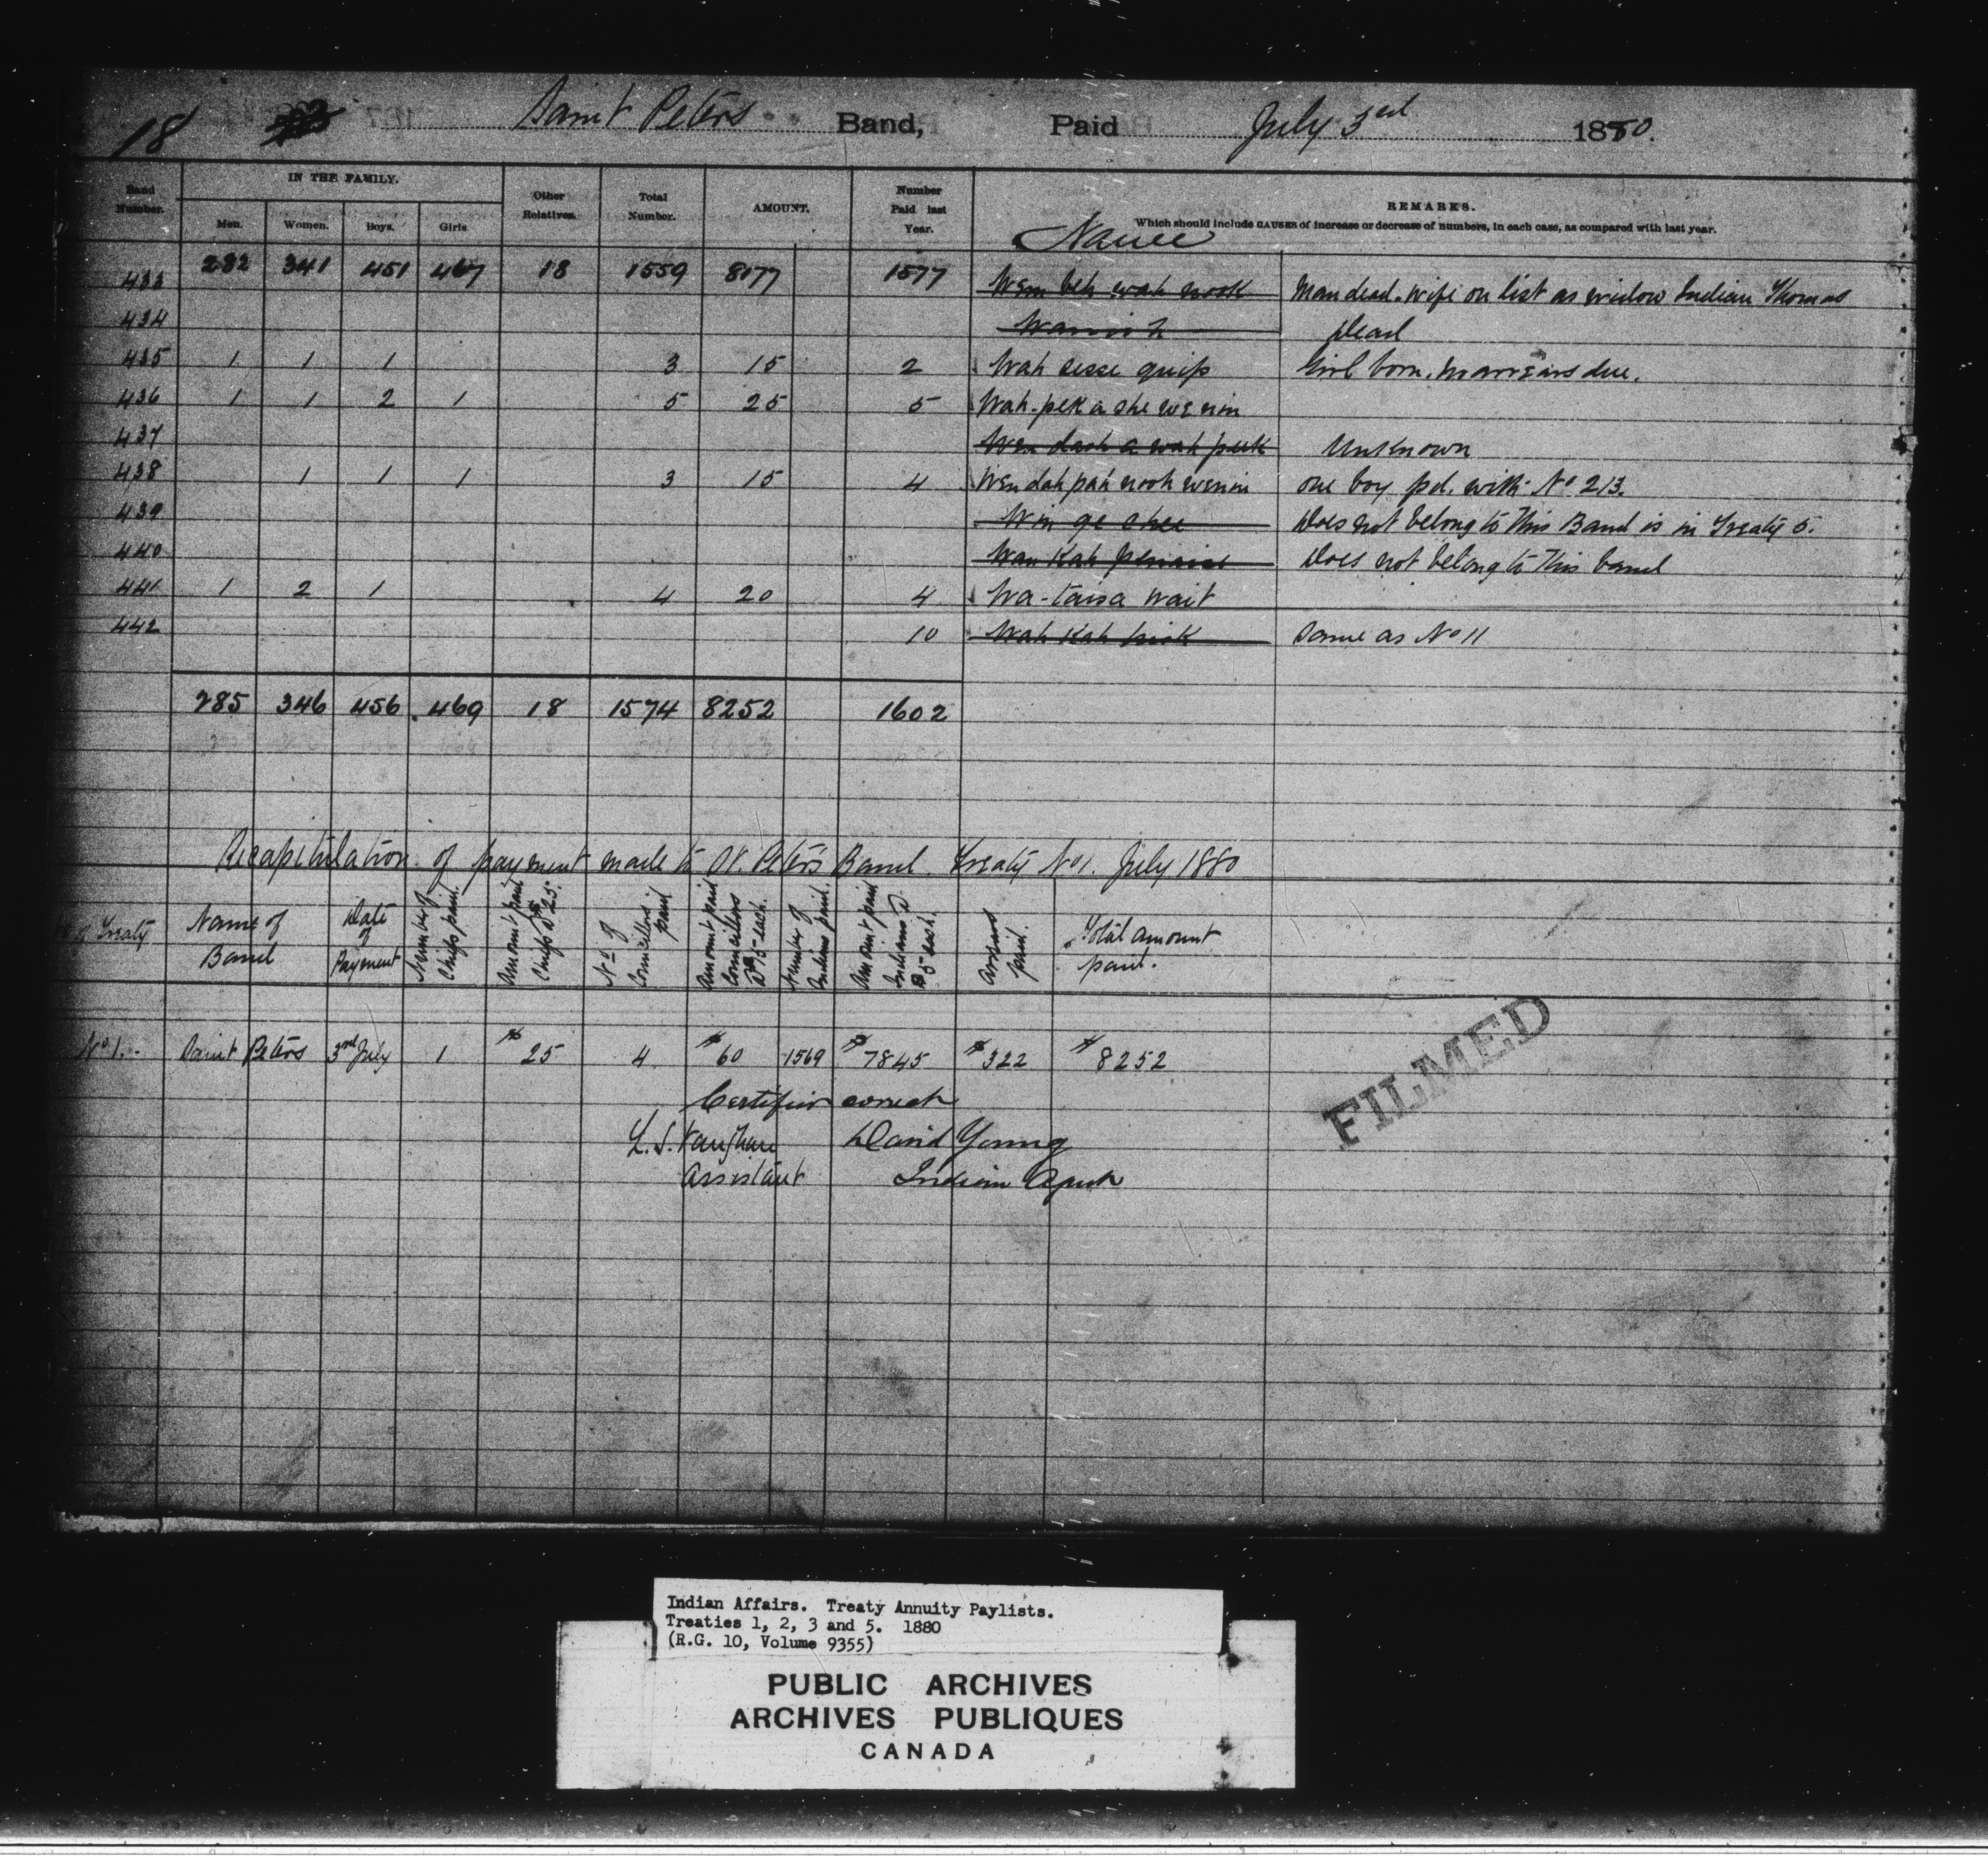 18 Saint Peters Band, Paid July 3rd 1880.
Band Number. IN THE FAMILY. Other Relatives. Total Number. AMOUNT. Number Paid last Year. REMARKS.
Men. Women. Boys. Girls. Name Which should include CAUSES of increase or decrease of numbers, in each case, as compared with last year.
282 341 451 467 18 1559 8177 1577
433 Wem beh wah nook Man dead. Wife on list as widow Indian Thomas
434 Dead
435 1 1 1 3 15 2 Wah sesse quip Girl born. no arrears due.
436 1 1 2 1 5 25 5 Wah-pek a she wenin
437 Wen dash a wah peek Unknown
438 1 1 1 3 15 4 Wen dah pah nooh wenin one boy pd. with No 213.
439 Win ge shee Does not belong to this Band is in Treaty 5.
440 Wau Kah penaise Does not belong to this band
441 1 2 1 4 20 4 Wa-taisa wait
442 10 Wah Kah Same as No 11
285 346 456 469 18 1574 8252 1602
Recapitulation of payment made to St. Peters Band. Treaty No 1. July 1880
of Treaty
Name of Band
Date of Payment
Number of Chiefs paid.
Amount paid Chiefs @ $25.
No of Councillors paid
Amount paid Councillors @ $15 each.
Number of Indians paid.
Amount paid Indians @ $5 each.
Arrears paid.
Total amount paid.
No 1. Saint Peters 3rd July 1 $25 4 $60 1569 $7845 $322 $8252
Certified correct
L. S. Vaughan David Young
Assistant Indian Agent
FILMED
Indian Affairs. Treaty Annuity Paylists.
Treaties 1, 2, 3 and 5. 1880
(R.G. 10, Volume 9355)
PUBLIC ARCHIVES
ARCHIVES PUBLIQUES
CANADA